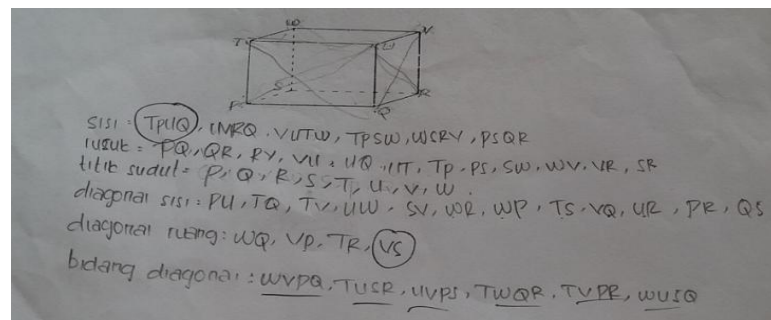 W
V
T
U
S
R
P
Q
sisi = TPUQ, UVRQ, VUTW, TPSW, WSRV, PSQR
rusuk = PQ, QR, RV, VU, UQ, UT, TP, PS, SW, WV, VR, SR
titik sudut = P, Q, R, S, T, U, V, W.
diagonal sisi : PU, TQ, TV, UW, SV, WR, WP, TS, VQ, UR, PR, QS
diagonal ruang : WQ, VP, TR, VS
bidang diagonal : WVPQ, TUSR, UVPS, TWQR, TVPR, WUSQ